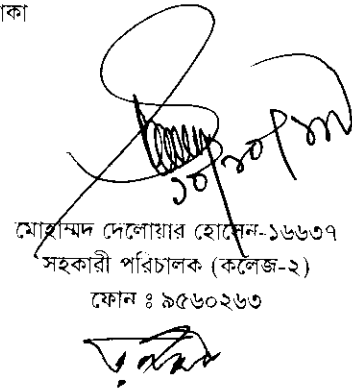 াকা
১০/১০/১৮
মোহাম্মদ দেলোয়ার হোসেন-১৬৬৩৭
সহকারী পরিচালক (কলেজ-২)
ফোন ঃ ৯৫৬০২৬৩